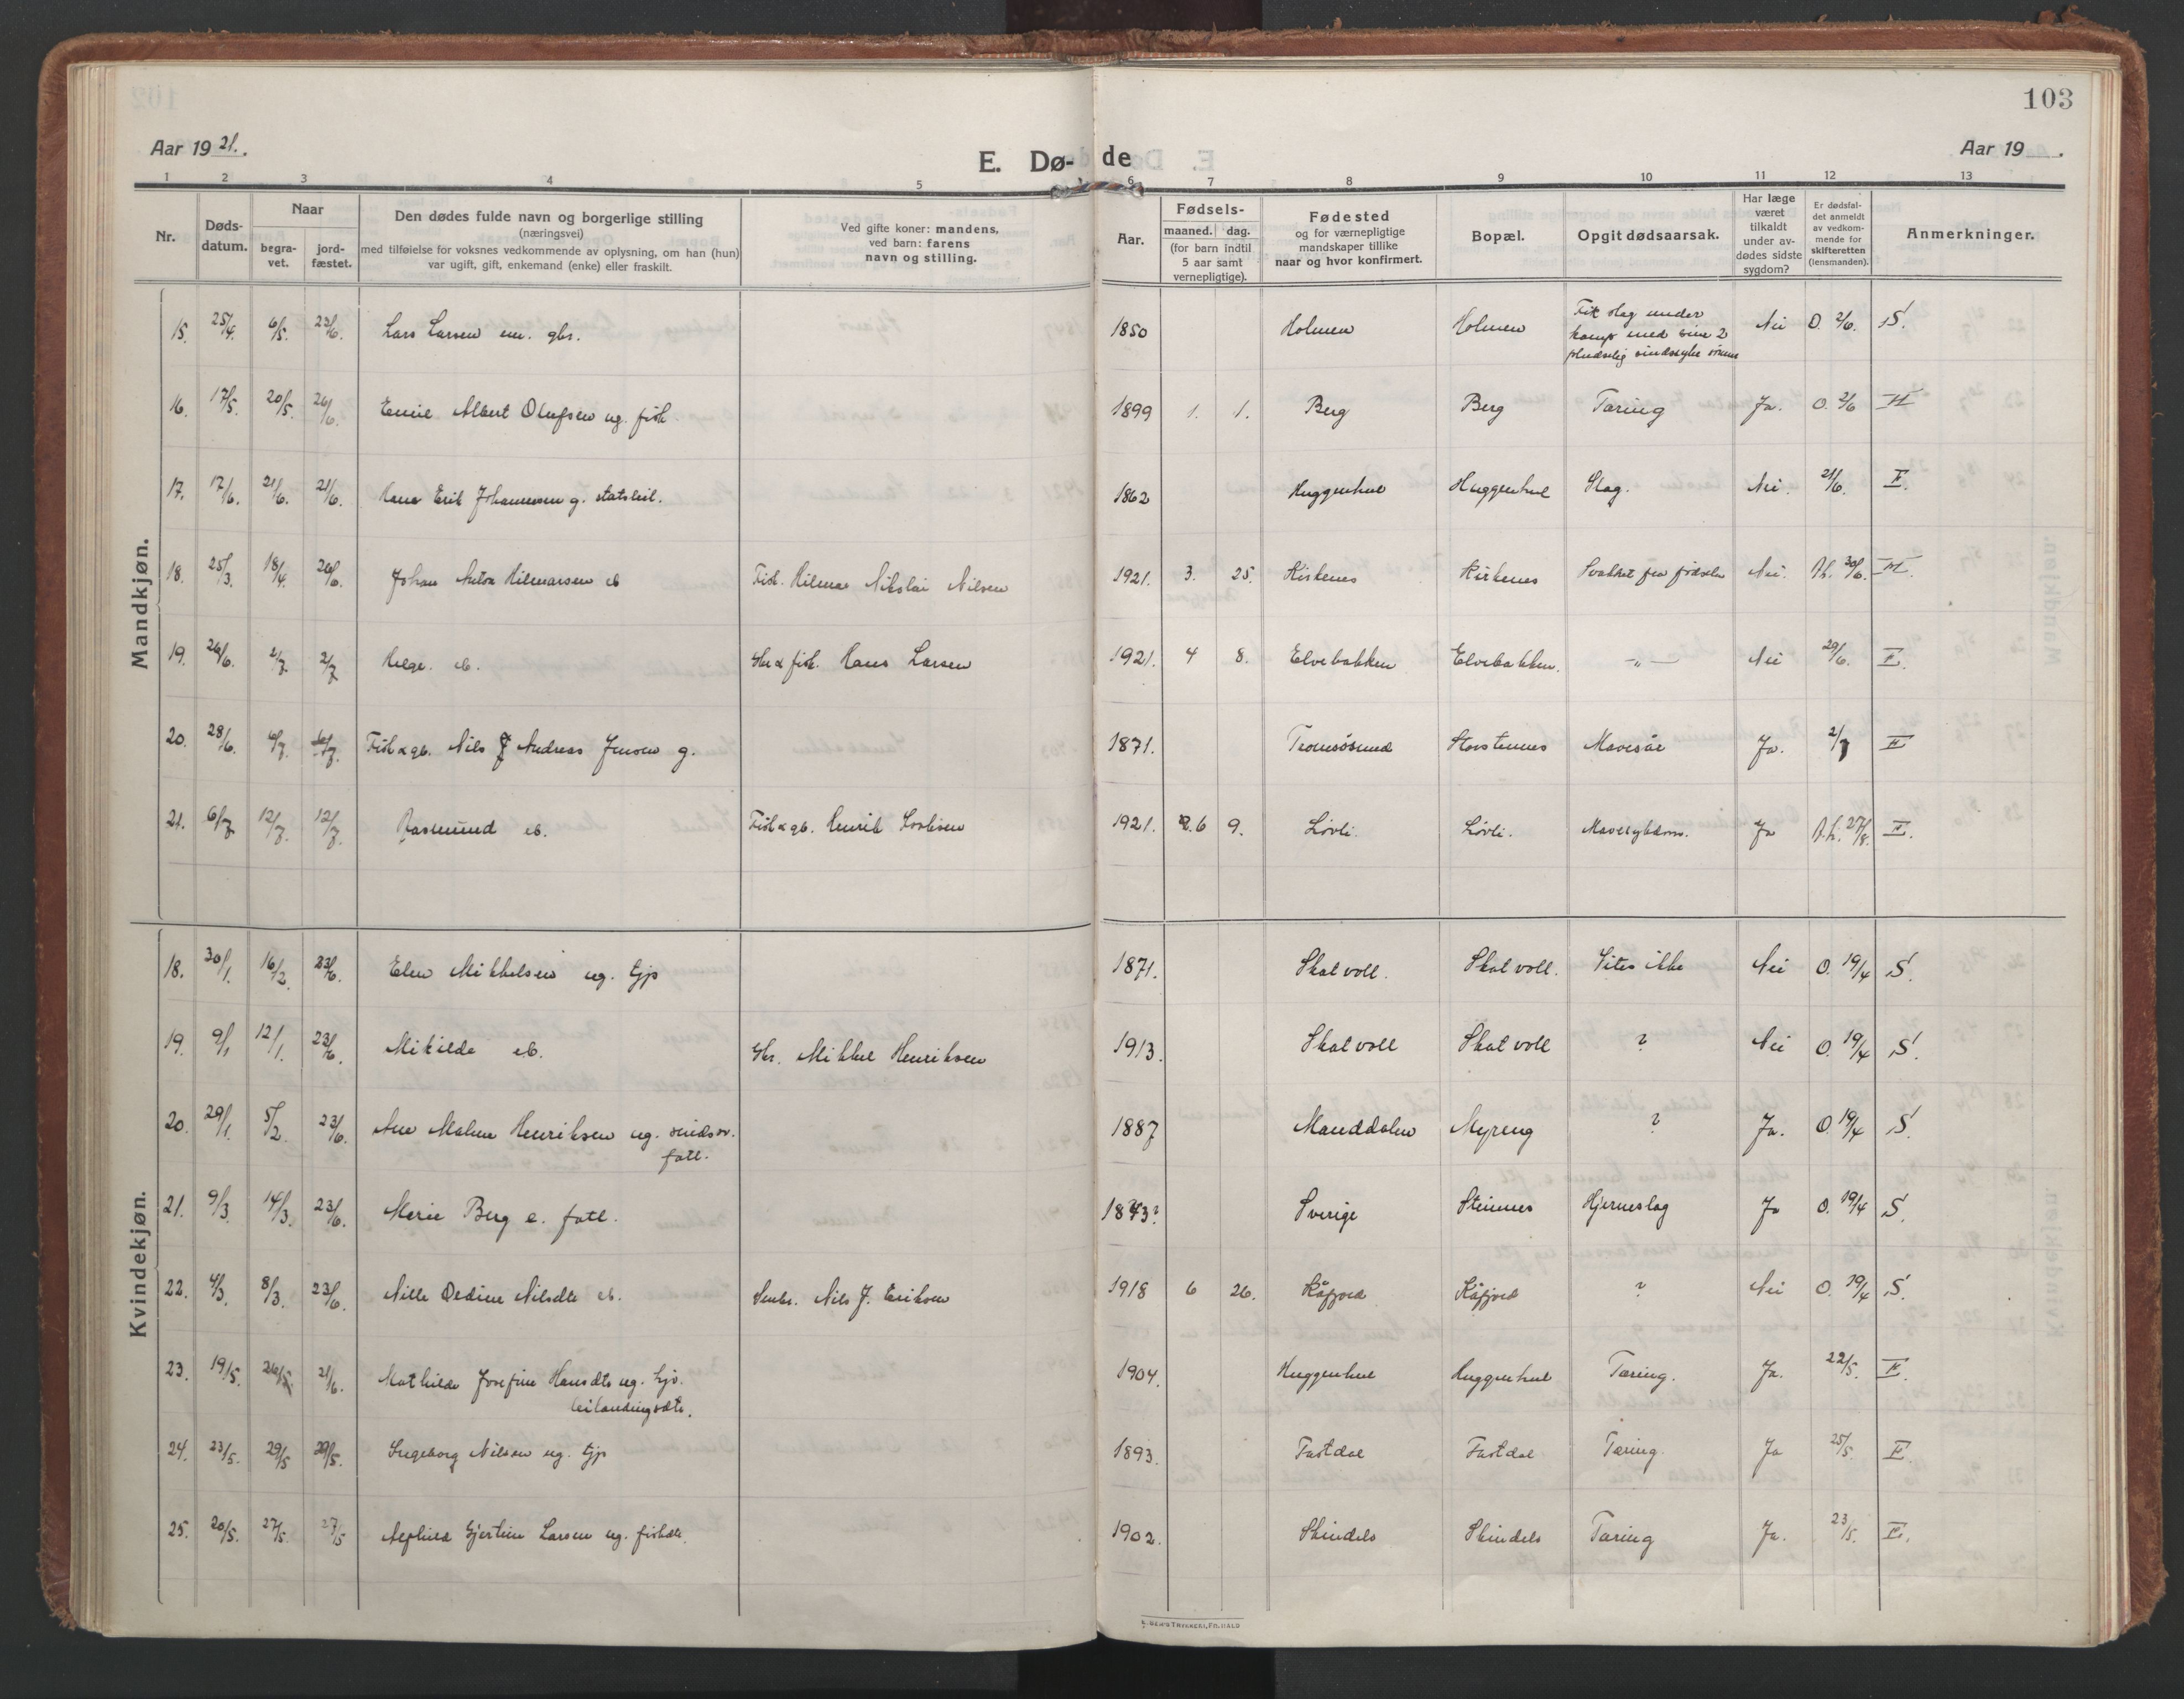 103
Aar 1921.
E. Dø-de
Aar 19
1 2 3 4 5 6 7 8 9 10 11 12 13
Nr.
Døds-
datum.
Naar
begra-
vet.
jord-
fæstet.
Den dødes fulde navn og borgerlige stilling
(næringsvei)
med tilføielse for voksnes vedkommende av oplysning, om han (hun)
var ugift, gift, enkemand (enke) eller fraskilt.
Ved gifte koner: mandens,
ved barn: farens
navn og stilling.
Aar.
Fødsels-
maaned. dag.
(for barn indtil
5 aar samt
vernepligtige).
Fødested
og for værnepligtige
mandskaper tillike
naar og hvor konfirmert.
Bopæl.
Opgit dødsaarsak.
Har læge
været
tilkaldt
under av-
dødes sidste
sygdom?
Er dødsfal-
det anmeldt
av vedkom-
mende for
skifteretten
(lensmanden).
Anmerkninger.
Mandkjøn.
15. 25/4. 6/5. 23/6. Lars Larsen em. gbr. 1850 Holmen Holmen Fik slag under
kamp med sine 2
pludselig sindssyke sønner Nei O. 2/6. S.
16. 17/5. 20/5. 26/6. Emil Albert Olufsen ug. fisk. 1899 1. 1. Berg Berg Tæring Ja. O. 2/6 H
17. 17/6. 21/6. 21/6. Hans Erik Johannesen g. statsleil. 1862 Huggenhul Huggenhul Slag. Nei. 21/6. F.
18. 25/3. 18/4. 26/6. Johan Anton Hilmarsen eb Fisk. Hilmar Nikolai Nilsen 1921. 3. 25. Kirkenes Kirkenes Svakhet fra fødselen Nei. 30/6. H.
19. 26/6. 2/7. 2/7 Helge. eb. Gbr & fisk. Hans Larsen 1921. 4 8. Elvebakken Elvebakken. -"- Nei 29/6. F.
20. 28/6. 6/7. 6/7. Fisk & gb. Nils J Andreas Jensen g. 1871. Tromsøsund Storstennes Mavesår Ja. 2/7 F
21. 6/7 12/7. 12/7. Rasmund eb. Fisk & gb. Henrik 1921. 6 9. Løvli. Løvli. Mavesykdom. Ja 27/8. F.
Kvindekjøn.
18. 30/1. 16/2. 23/6. Elen Mikkelsen ug. tjp 1871. Skatvoll. Skatvoll. Vites ikke Nei O. 19/4 S.
19. 9/1 12/1. 23/6. Mikilde eb. Gbr. Mikkel Henriksen 1913. Skatvoll Skatvoll ? Nei O. 19/4 S.
20. 29/1. 5/2. 23/6. Ane Malene Henriksen ug. sindssv.
fatl. 1887 Manddalen Myreng ? Ja. O. 19/4 S.
21. 9/3. 14/3. 23/6. Marie Berg e. fatl. 1843? Sverige Steinnes Hjerneslag Ja O. 19/4 S.
22. 4/3. 8/3. 23/6. Nille Oedine Nilsdtr eb. Smbr. Nils J. Eriksen 1918 6 26. Kåfjord Kåfjord ? Nei O. 19/4 S.
23. 19/5. 26/5 21/6. Mathilde Josefine Hansdtr ug. tjp.
leilændingsdtr. 1904. Huggenhul Huggenhul Tæring. Ja. 22/5. F.
24. 23/5. 29/5 29/5. Ingeborg Nilsen ug. tjp 1893. Fastdal Fastdal Tæring. Ja 25/5. F.
25. 20/5. 27/5. 27/5 Alfhild Gjertine Larsen ug. fiskdtr. 1902. Skindels Skindels Tæring Ja. 23/5. F.
TRYKKERI, FR.HALD